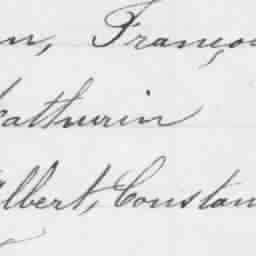 n, Françoi
athurin
lbert, Constan